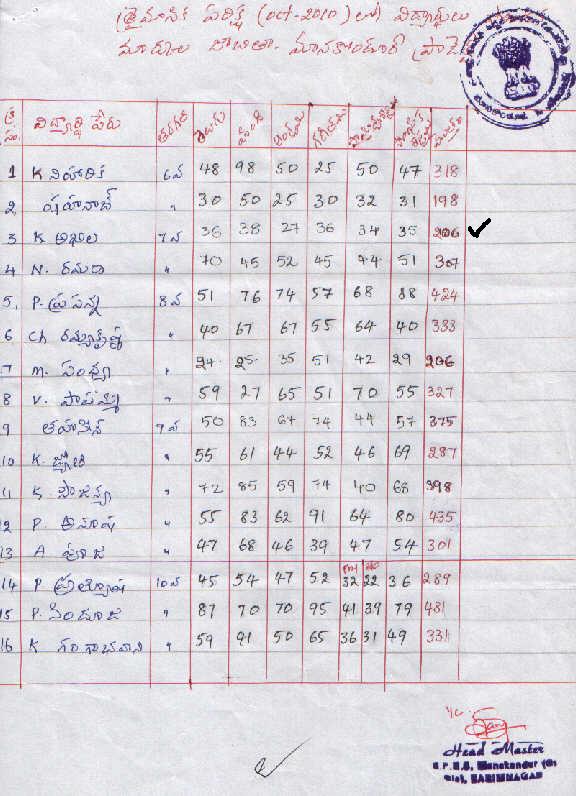 త్రైమాసిక పరీక్ష (oct-2010) లో విద్యార్థులు
మార్కుల జాబితా - మానకొండూర్
క్ర సం. విద్యార్థి పేరు తరగతి తెలుగు హిందీ ఇంగ్లీషు గణితము
1 K నిహారిక 6వ 48 98 50 25 50 47 318
2 షహనాజ్ " 30 50 25 30 32 31 198
3 K అఖిల 7వ 36 38 27 36 34 35 206
4 N. రమాదే " 70 45 52 45 44 51 307
5. P. ప్రసన్న 8వ 51 76 74 57 68 88 424
6 Ch " 40 67 67 55 64 40 333
7 M. సంధ్య " 24 25 35 51 42 29 206
8 V. పావని " 59 27 65 51 70 55 327
9 తహసీన్ 9వ 50 83 67 74 44 57 375
10 K. జ్యోతి " 55 61 44 52 46 69 287
11 K. సౌజన్య " 72 85 59 74 40 68 398
12 P. అనూష " 55 83 62 91 64 80 435
13 A పూజ " 47 68 46 39 47 54 301
14 P ప్రత్యూష 10వ 45 54 47 52 32 22 36 289
15 P. సింధూజ " 87 70 70 95 41 39 79 481
16 K గంగాభవాని " 59 91 50 65 36 31 49 331
Head Master
Manakondur
KARIMNAGAR